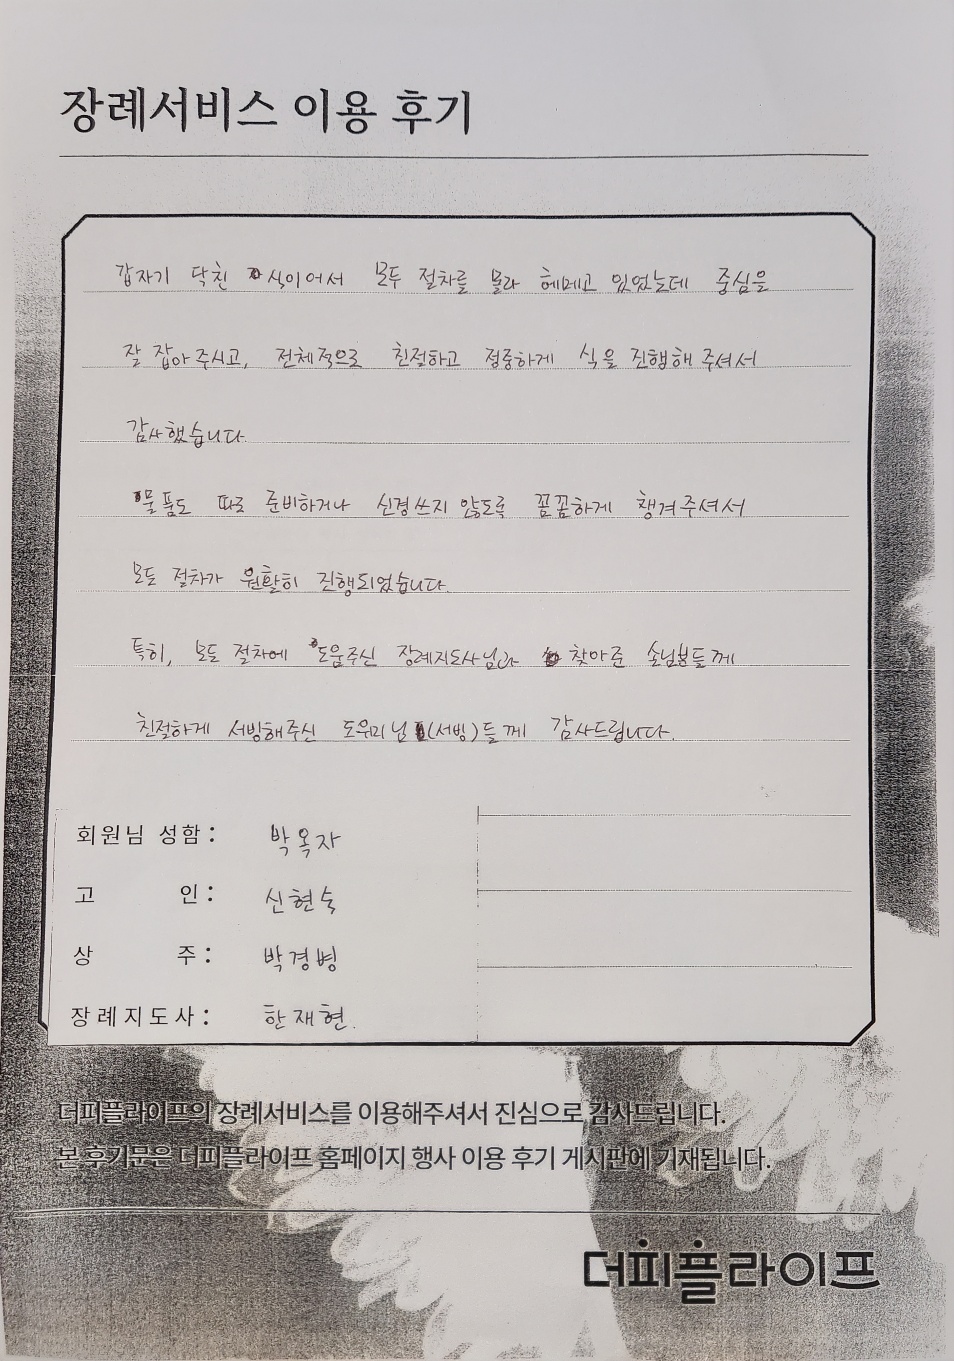 장례서비스 이용 후기
갑자기 닥친 식이어서 모두 절차를 몰라 헤메고 있었는데 중심을
잘 잡아주시고, 전체적으로 친절하고 정중하게 식을 진행해 주셔서
감사했습니다.
물품도 따로 준비하거나 신경쓰지 않도록 꼼꼼하게 챙겨주셔서
모든 절차가 원활히 진행되었습니다.
특히, 모든 절차에 도움주신 장례지도사님과 찾아준 손님분들께
친절하게 서빙해주신 도우미님(서빙)들께 감사드립니다.
회원님 성함 : 박옥자
고 인 : 신현숙
상 주 : 박경병
장례지도사 : 한재현.
더피플라이프의 장례서비스를 이용해주셔서 진심으로 감사드립니다.
본 후기문은 더피플라이프 홈페이지 행사 이용 후기 게시판에 기재됩니다.
더피플라이프